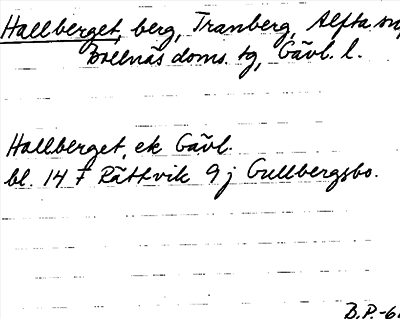 Hallberget, berg, Tranberg, Alfta sn,
Bollnäs doms. tg, Gävl. l.
Hallberget, ek Gävl.
bl. 14 F Rättvik 9 j Gullbergsbo.
B.P.-6